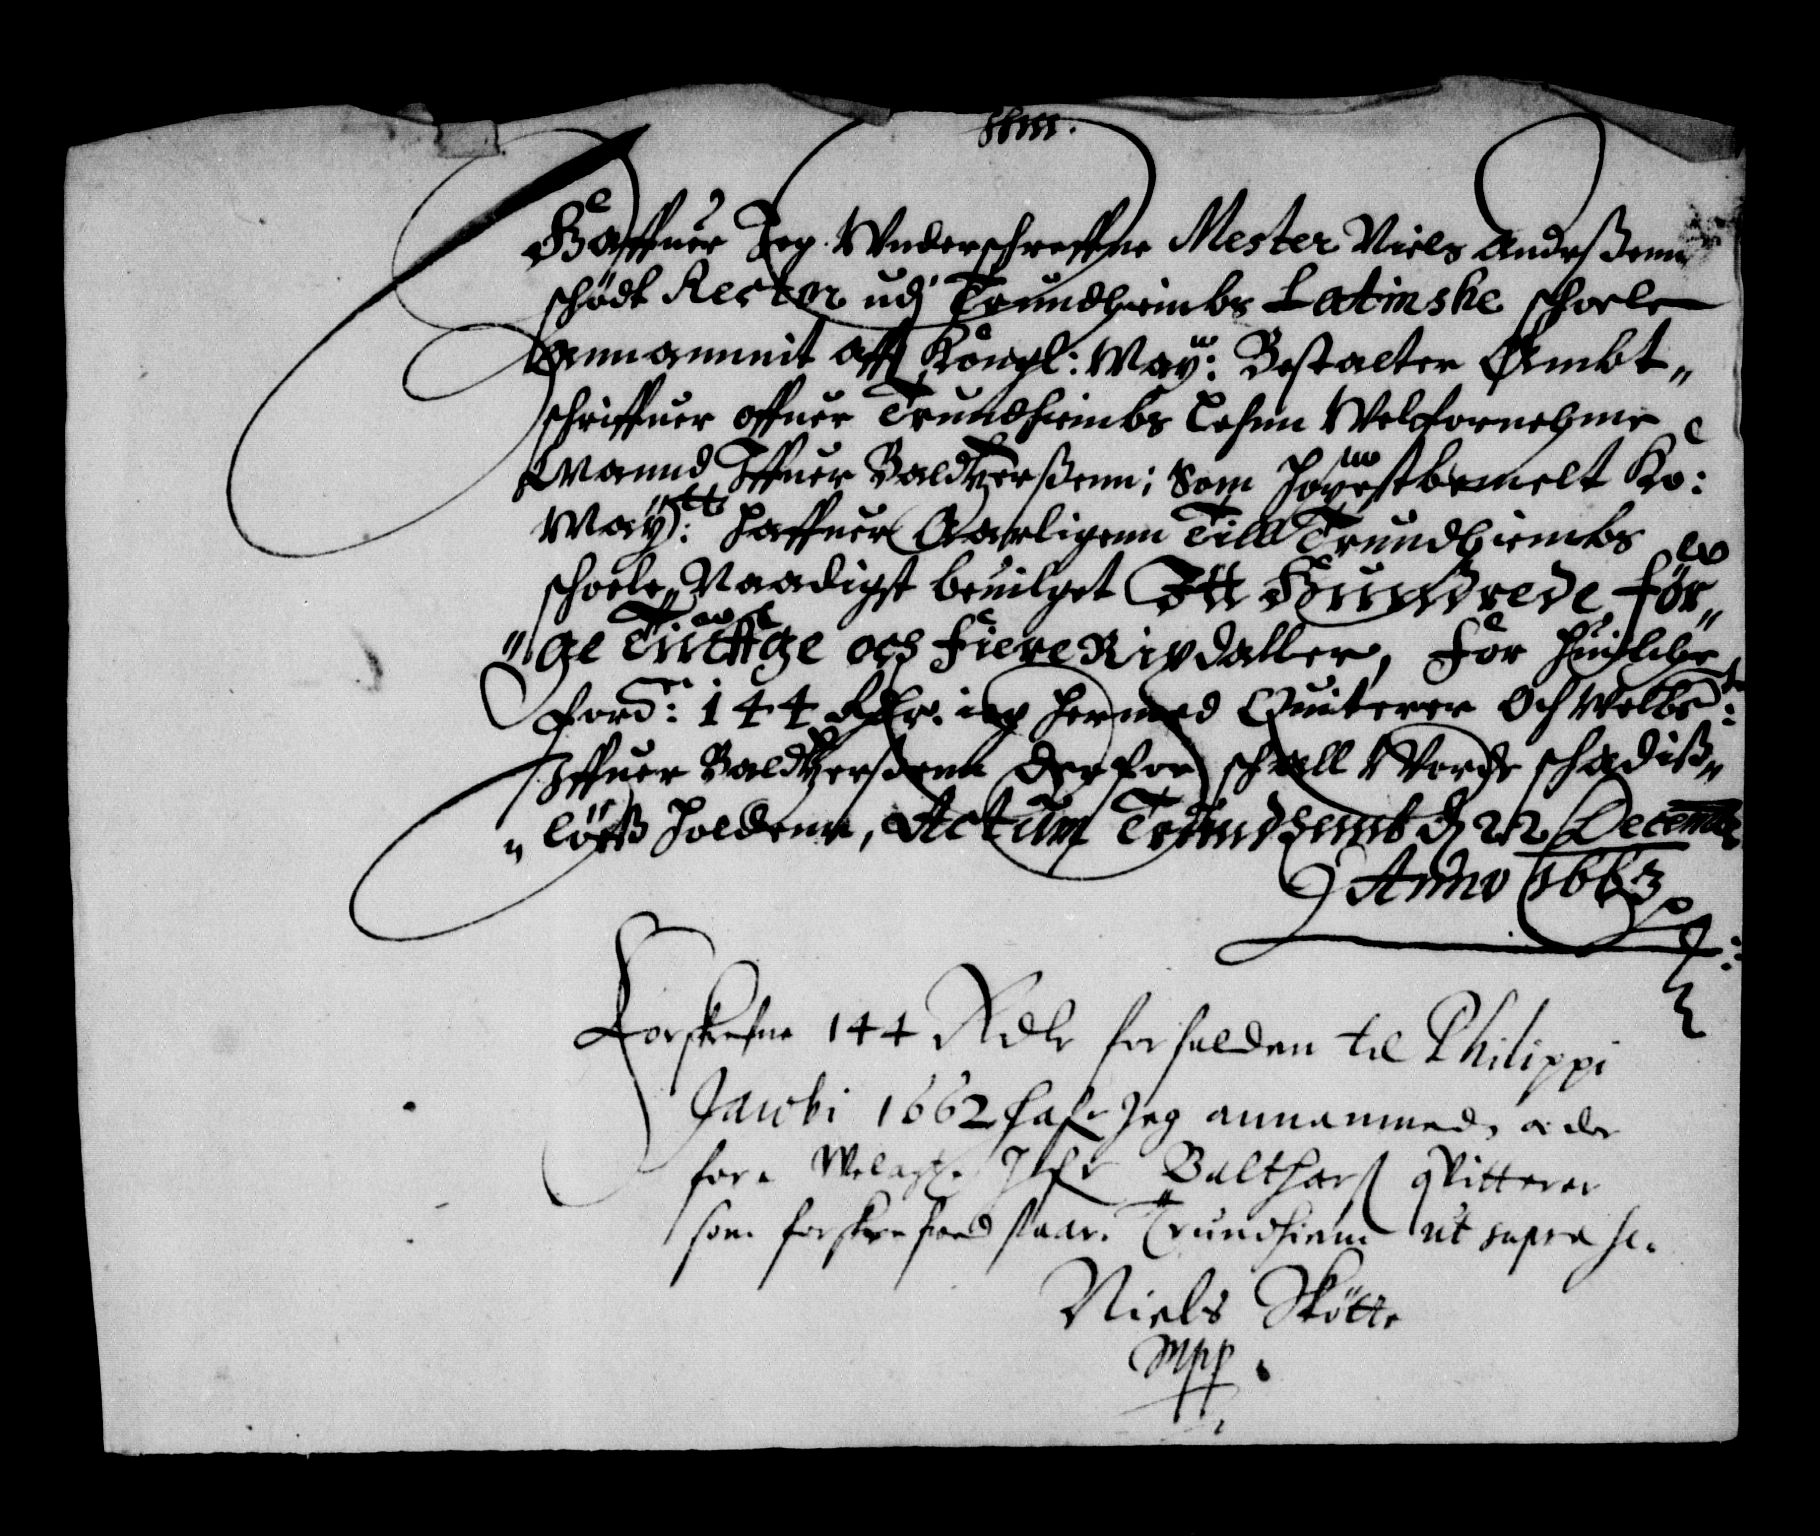 Haffuer Jeg Underschreffne Mester Niels Andersßenn
schødt Rector udj Trundhiembs Latinske schoele
Annammit aff Kongl: May: Bestalter Ambt„
schriffuer offuer Trundhiembs Lehnn Welfornehme
Mannd Iffuer Baldtzersßenn; Som høyestbemelt Ko:
May:tt haffuer Aarligenn Till Trundhiembs
schoele, Naadigst beuilget Itt Hundrede För„
„ge Tiuffge och Fiere Rixdaller, For huilche
ford: 144 Rdlr. ieg hermed Quiterer Och Welbe:te
Iffuer Baldtzersßenn derfor schall Worde schadiß„
„löeß holdenn, Actum Trundhiemb d 22 Decemb
Anno 1663
Forskrefne 144 Rdlr forfalden til Philippi
Jacobi 1662 hafr Jeg annammed, oc der
for Welagt. Ifr Balthars qvitterer
som forskrefved staar. Trundhiem ut supra
Niels Skøtte
Mpp